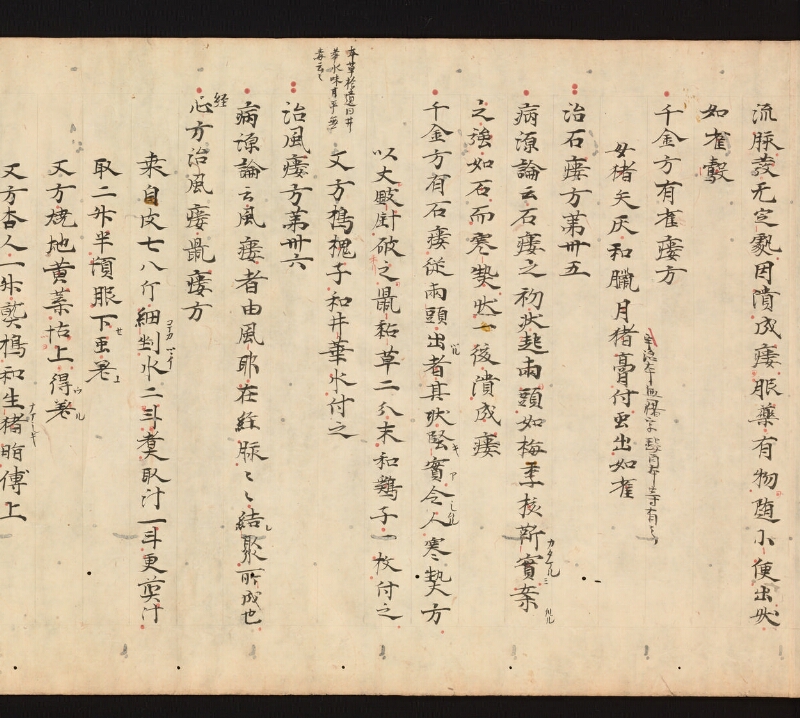 流脉發无定處因潰成瘻服藥有物随小便出狀
如雀鷇
千金方有雀瘻方
母猪矢灰和臘月猪膏付虫出如雀
治石瘻方第卅五
病源論云石瘻之初狀起兩頭如梅李核䩕實案
之強如石而寒熱狀一後潰成瘻
千金方有石瘻從兩頭出者其狀堅實令人寒熱方
以大鈹針破之鼠黏草二分末和鷄子一枚付之
又方搗槐子和井華水付之
本草拾遺曰井
華水味甘平无
毒云々
治風瘻方第卅六
病源論云風瘻者由風耶在經脉々々結聚所成也
経心方治風瘻鼠瘻方
桑白皮七八斤細剉水二斗煑取汁一斗更煎汁
取二升半頓服下虫差
又方燒地黄葉怗上得差
又方杏人一升熬搗和生猪脂傅上